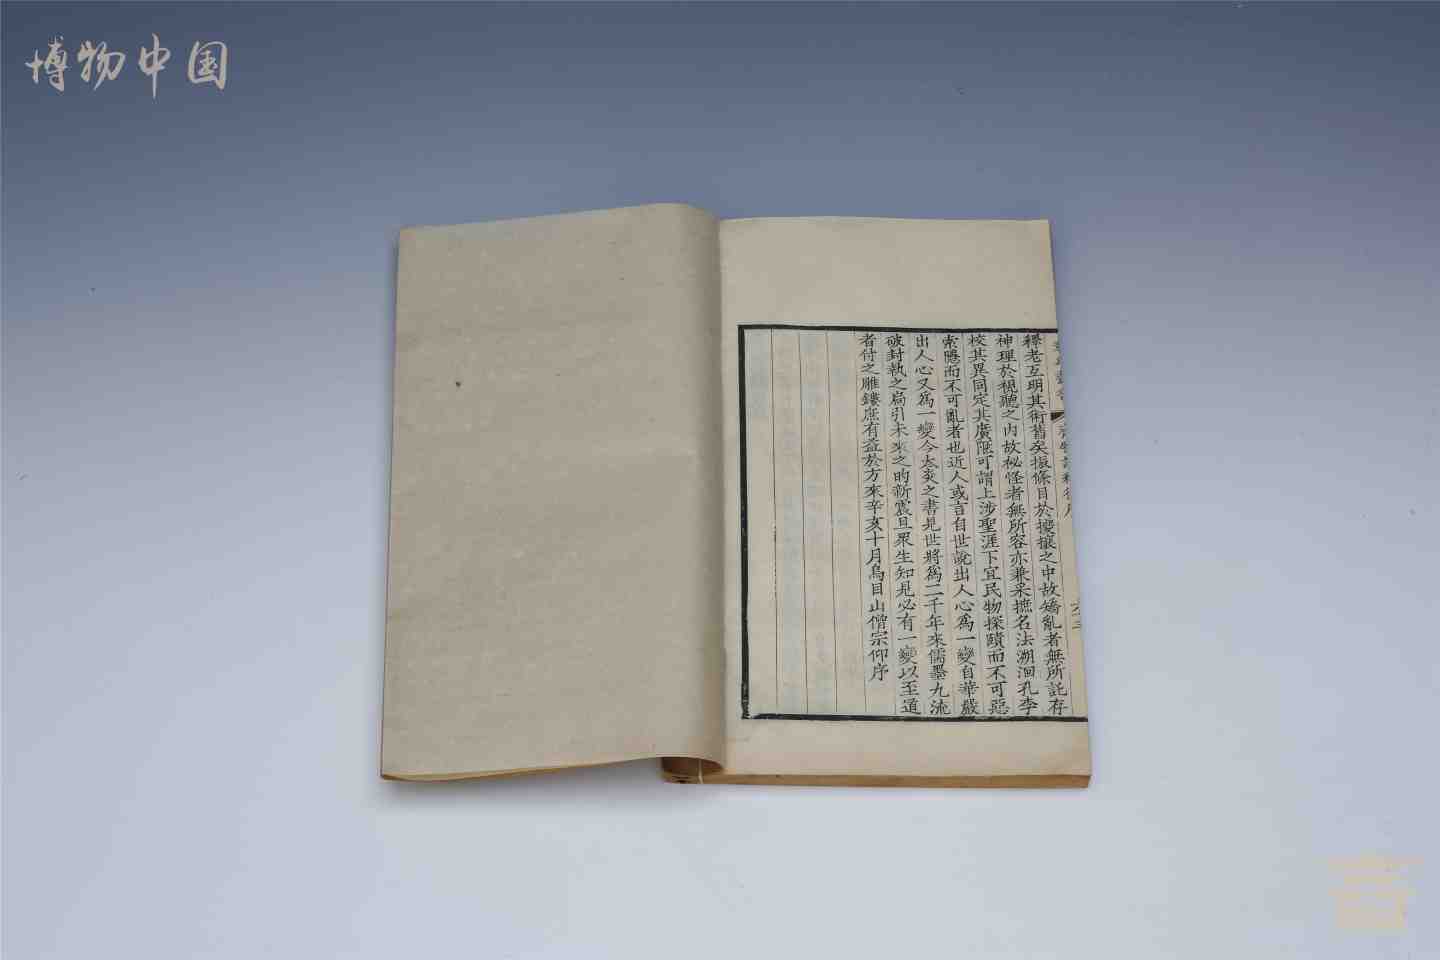 博物中国
釋老互明其術舊矣振條目於擾攘之中故矯亂者無所託存
神理於視聽之内故祕怪者無所容亦兼采摭名法溯洄孔李
校其異同定其廣陿可謂上涉聖涯下宜民物探賾而不可惡
索隱而不可亂者也近人或言自世說出人心爲一變自華嚴
出人心又爲一變今太炎之書見世將爲二千年來儒墨九流
破封執之扃引未來之的新震旦眾生知見必有一變以至道
者付之雕鏤庶有益於方來辛亥十月烏目山僧宗仰序